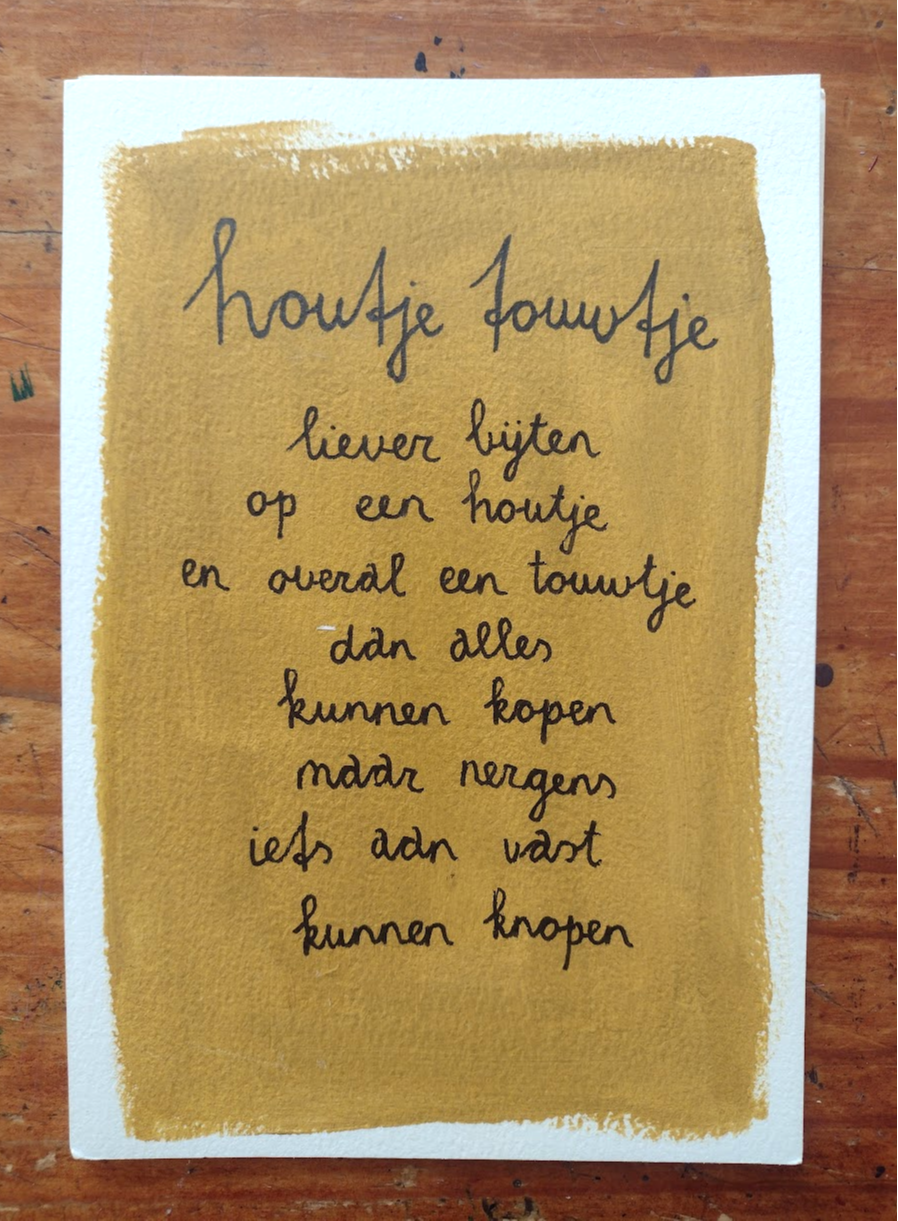 houtje touwtje
liever bijten
op een houtje
en overal een touwtje
dan alles
kunnen kopen
maar nergens
iets aan vast
kunnen knopen